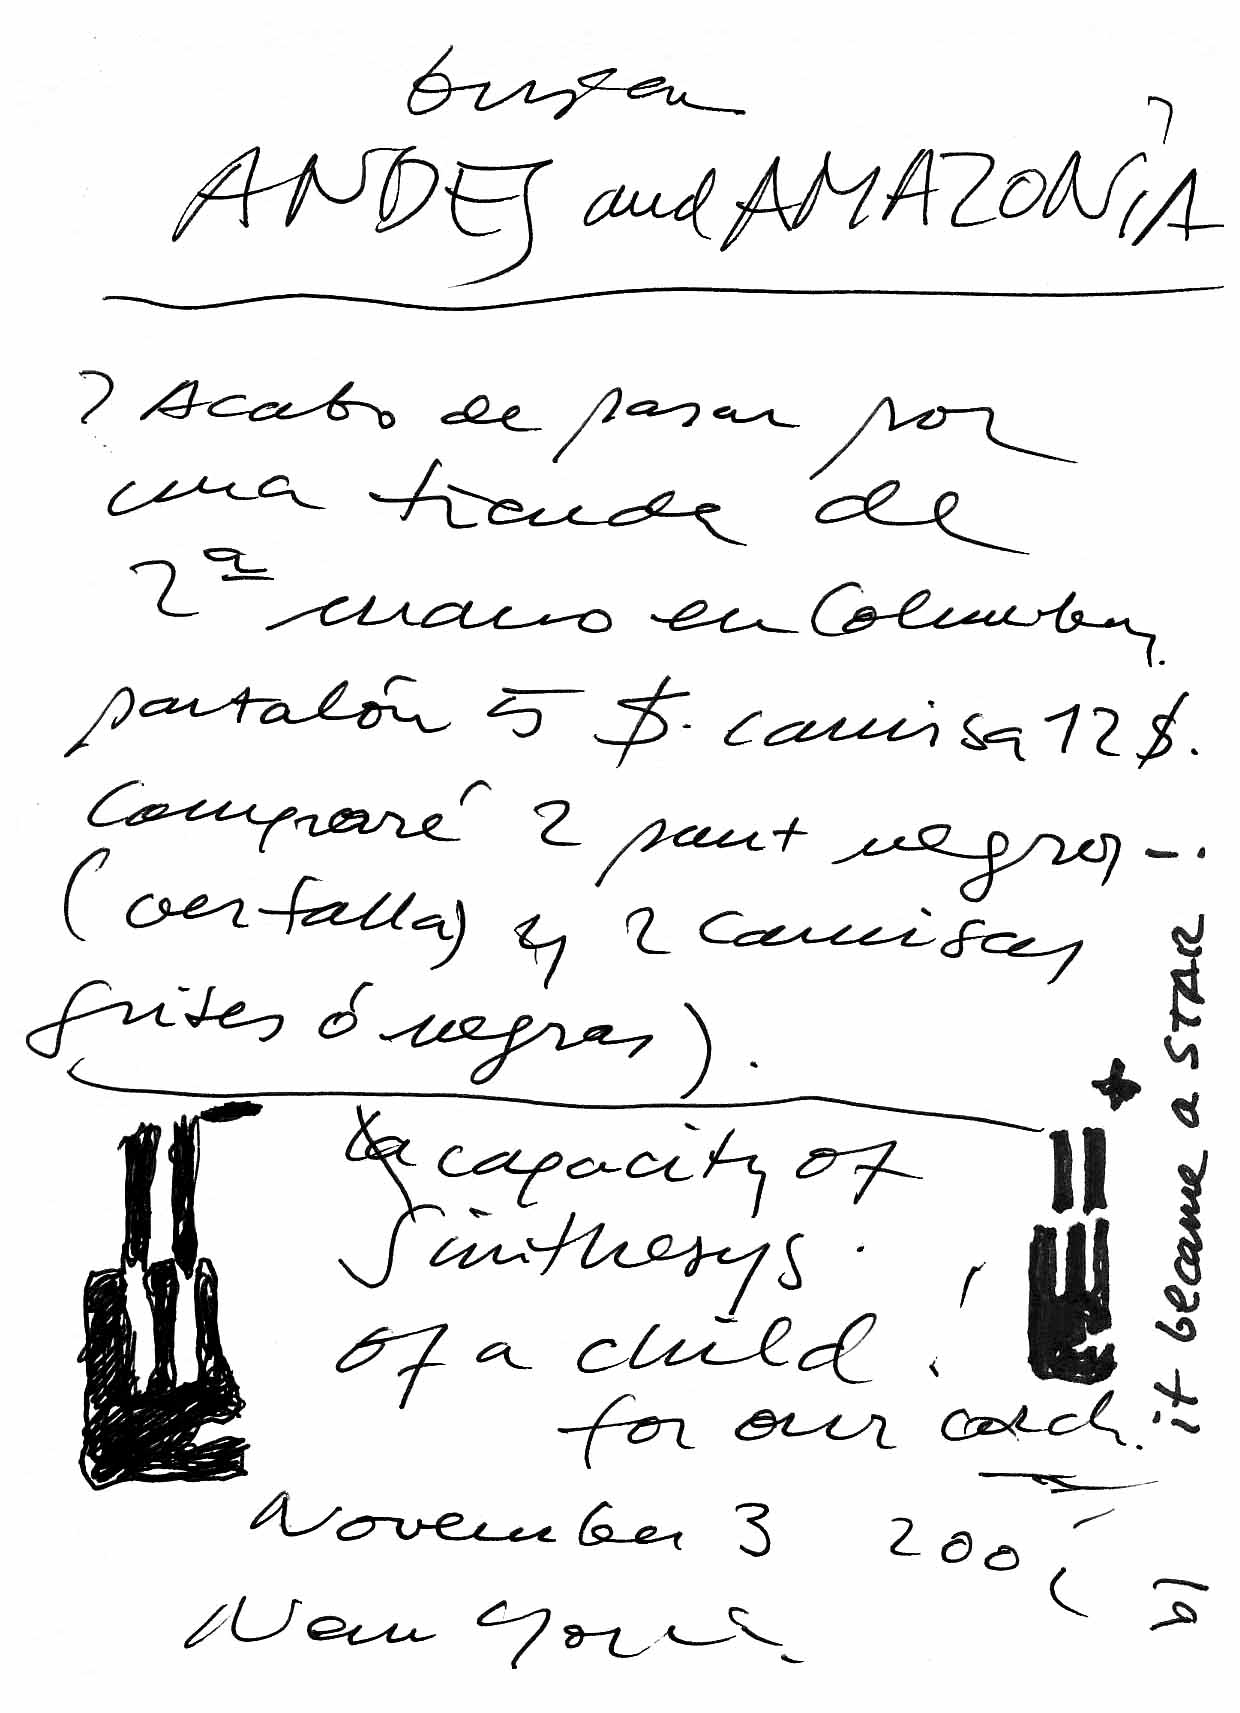 buscar
ANDES and AMAZONÍA
? Acabo de pasar por
una tienda de
2ª mano en Columbus,
pantalón 5 $. camisa 12 $.
Compraré 2 pant negros -.
(ver talla) y 2 camisas
grises ó negras).
La capacity of
Sinthesys.
of a child!
for our
November 3 200
New York.
it became a STAR
b)